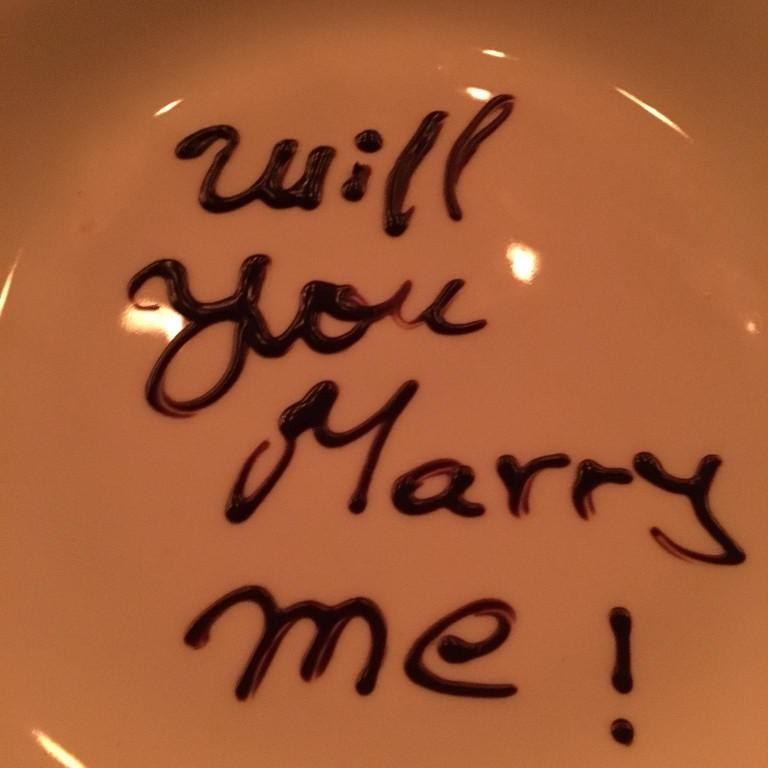 will
you
Marry
me!